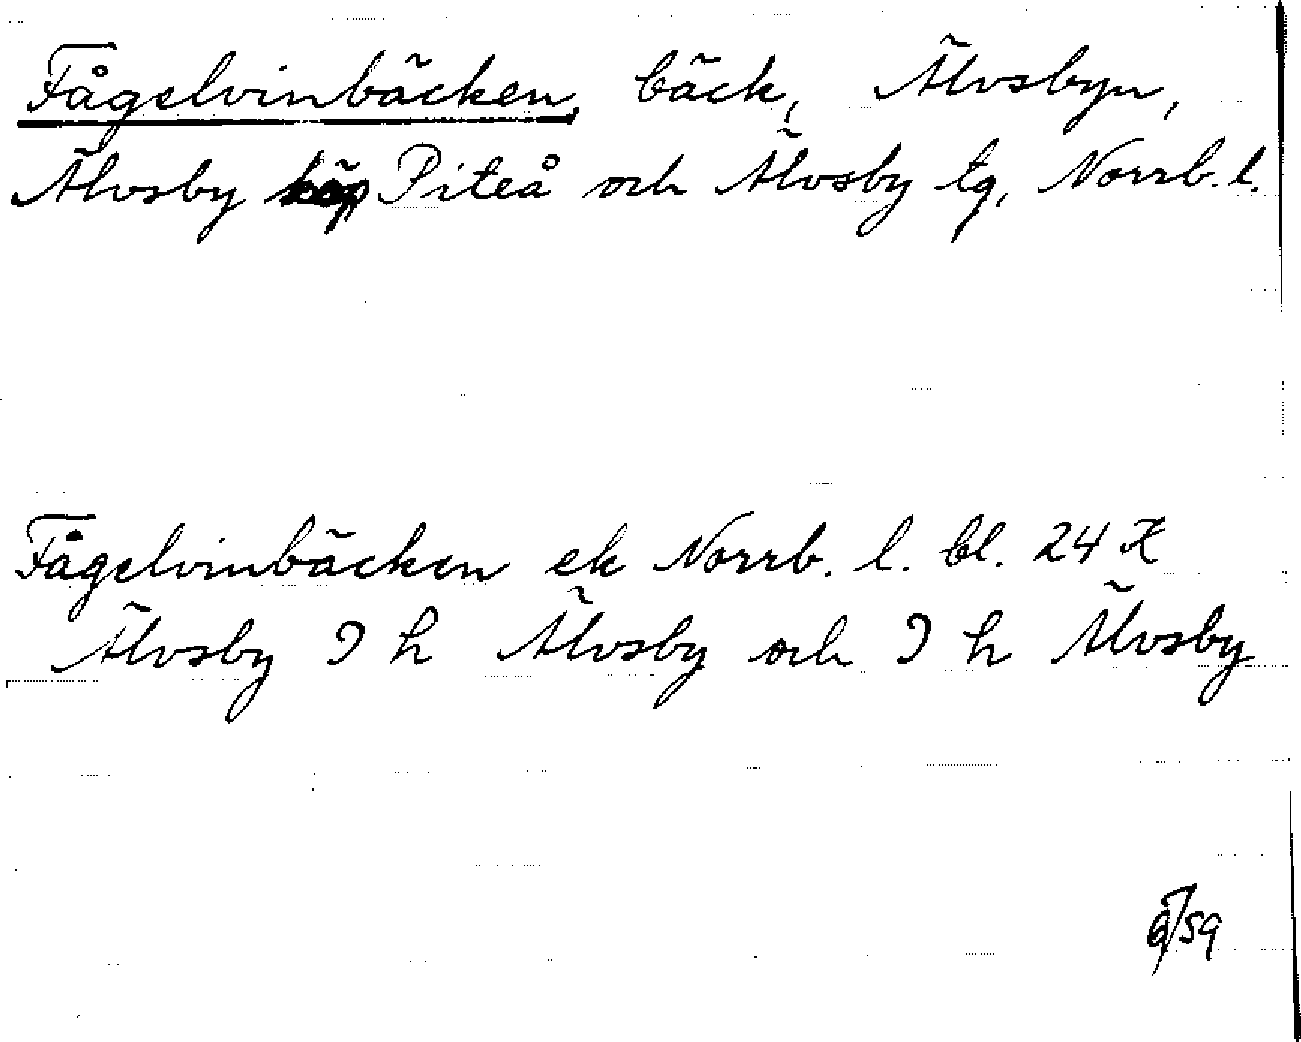 Fågelvinbäcken, bäck, Älvsbyn,
Älvsby Piteå och Älvsby tg, Norrb. l.
Fågelvinbäcken ek Norrb. l. bl. 24
Älvsby J h Älvsby och J h Älvsby
/59